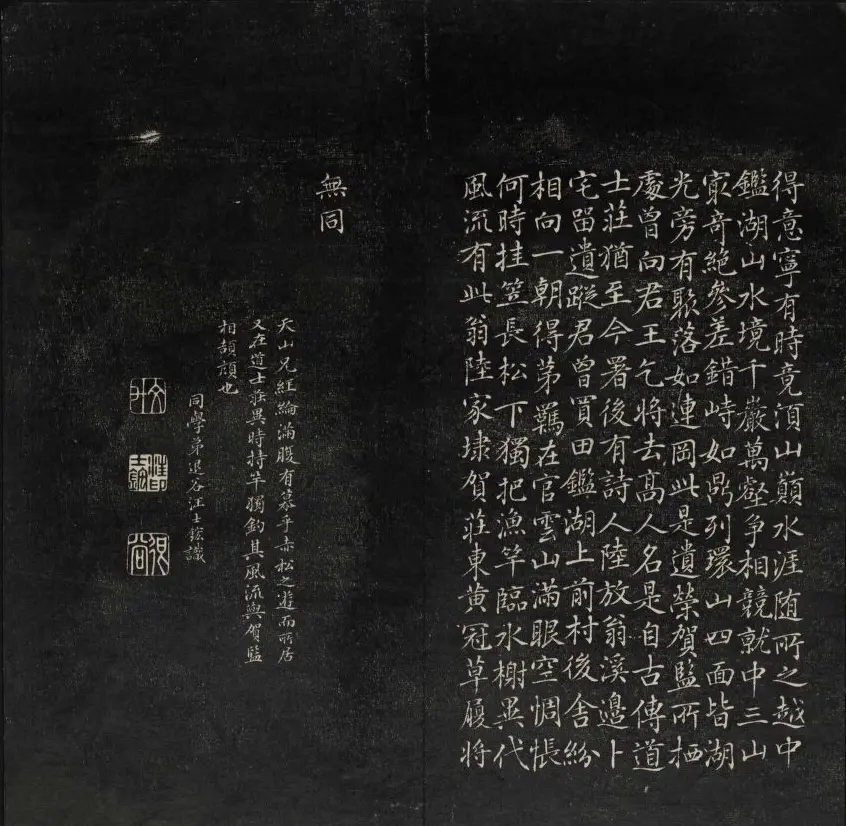 得意寧有時竟須山巔水涯随所之越中
鑑湖山水境千巖萬壑争相競就中三山
㝡奇絶參差錯峙如鼎列環山四面皆湖
光旁有聚落如連岡此是遺榮賀監所栖
處曾向君王乞將去高人名是自古傳道
士莊猶至今署後有詩人陸放翁溪邊卜
宅留遺蹤君曾買田鑑湖上前村後舍紛
相向一朝得第羈在官雲山滿眼空惆悵
何時挂笠長松下獨把漁竿臨水榭異代
風流有此翁陸家埭賀莊東黃冠草履將
無同
天山兄經綸滿腹有慕乎赤松之遊而所居
又在道士莊異時持竿獨釣其風流與賀監
相頡頏也
同學弟退谷汪士鋐識